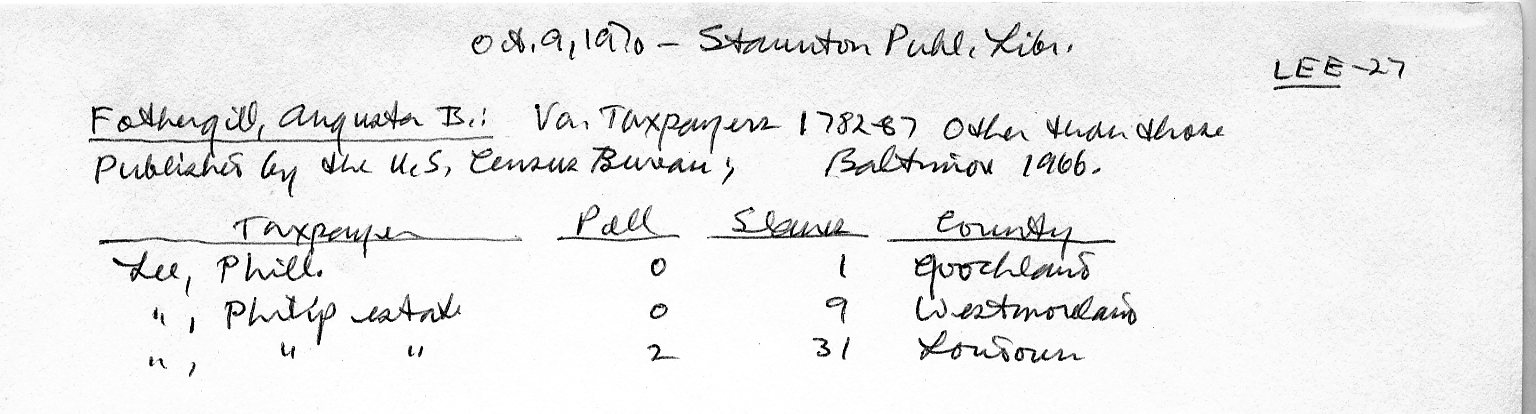 Oct. 9, 1970 – Staunton Publ. Libr.
LEE-27
Fothergill, Augusta B.: Va. Taxpayers 1782-87 Other than those
Published by the U.S. Census Bureau; Baltimore 1966.
Taxpayer Poll Slaves County
Lee, Phill. 0 1 Goochland
", Philip estate 0 9 Westmoreland
", " " 2 31 Loudoun